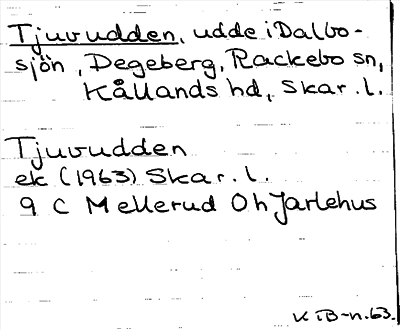 Tjuvudden, udde i Dalbo-
sjön, Degeberg, Rackebo sn,
Kållands hd, Skar. l.
Tjuvudden
ek (1963) Skar. l.
9 C Mellerud Oh Jarlehus
K iB-n. 63.